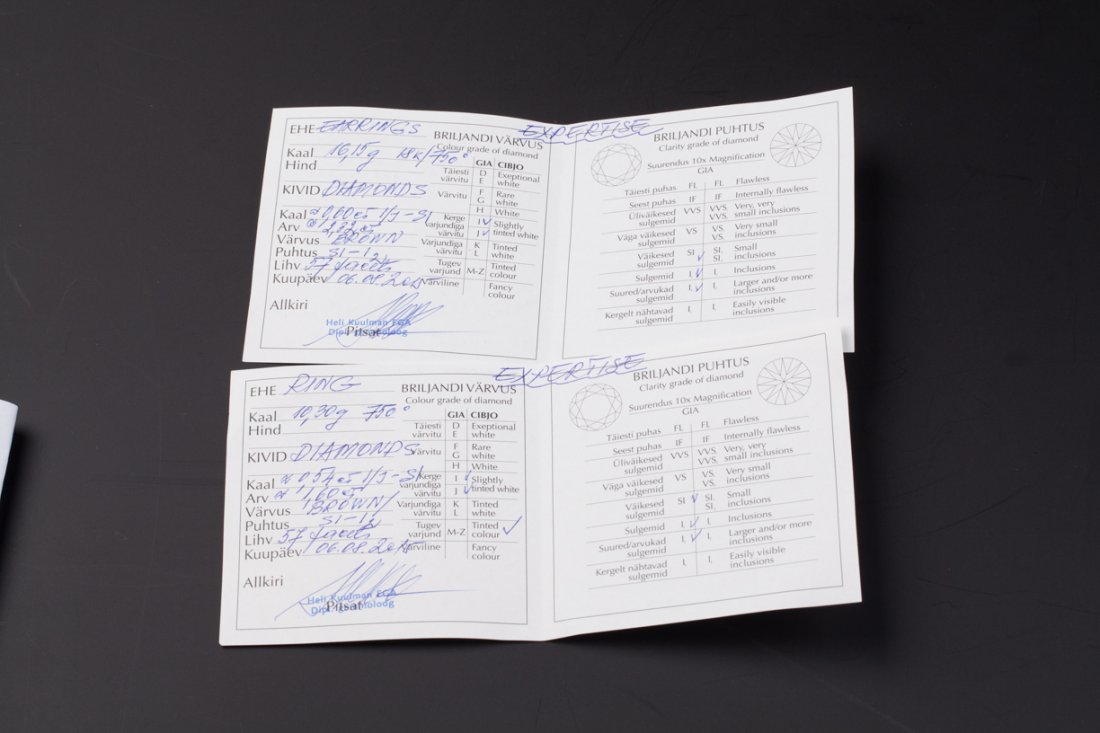 EHE EARRINGS
Kaal 16,15g 18K/750°
Hind
KIVID DIAMONDS
Kaal ≈0,60ct I/J-SI
Arv
Värvus BROWN
Puhtus SI-I
Lihv 57 facets
Kuupäev 06.08.2015
Allkiri
Heli Kuulman FGA
Pitsat
EXPERTISE
BRILJANDI VÄRVUS
Colour grade of diamond
GIA CIBJO
Täiesti värvitu D Exeptional
E white
Värvitu F Rare
G white
H White
Kerge I Slightly
varjundiga värvitu J tinted white
Varjundiga K Tinted
värvitu L
Tugev varjund M-Z Tinted colour
Värviline Fancy colour
BRILJANDI PUHTUS
Clarity grade of diamond
Suurendus 10x Magnification
GIA
Täiesti puhas FL FL Flawless
Seest puhas IF IF Internally flawless
Üliväikesed VVS VVS. Very, very
sulgemid VVS. small inclusions
Väga väikesed VS VS. Very small
sulgemid VS. inclusions
Väikesed SI SI. Small
sulgemid SI. inclusions
Sulgemid I. I. Inclusions
Suured/arvukad I. I. Larger and/or more
sulgemid inclusions
Kergelt nähtavad I. I. Easily visible
sulgemid inclusions
EHE RING
Kaal 10,30g 750°
Hind
KIVID DIAMONDS
Kaal ≈0,54ct I/J-SI
Arv ≈1,60ct
Värvus BROWN/
Puhtus SI-I
Lihv 57 facets
Kuupäev 06.08.2015
Allkiri
Heli Kuulman FGA
Pitsat
EXPERTISE
BRILJANDI VÄRVUS
Colour grade of diamond
GIA CIBJO
Täiesti värvitu D Exeptional
E white
Värvitu F Rare
G white
H White
Kerge I Slightly
varjundiga värvitu J tinted white
Varjundiga K Tinted
värvitu L
Tugev varjund M-Z Tinted colour
Värviline Fancy colour
BRILJANDI PUHTUS
Clarity grade of diamond
Suurendus 10x Magnification
GIA
Täiesti puhas FL FL Flawless
Seest puhas IF IF Internally flawless
Üliväikesed VVS VVS. Very, very
sulgemid VVS. small inclusions
Väga väikesed VS VS. Very small
sulgemid VS. inclusions
Väikesed SI SI. Small
sulgemid SI. inclusions
Sulgemid I. I. Inclusions
Suured/arvukad I. I. Larger and/or more
sulgemid inclusions
Kergelt nähtavad I. I. Easily visible
sulgemid inclusions